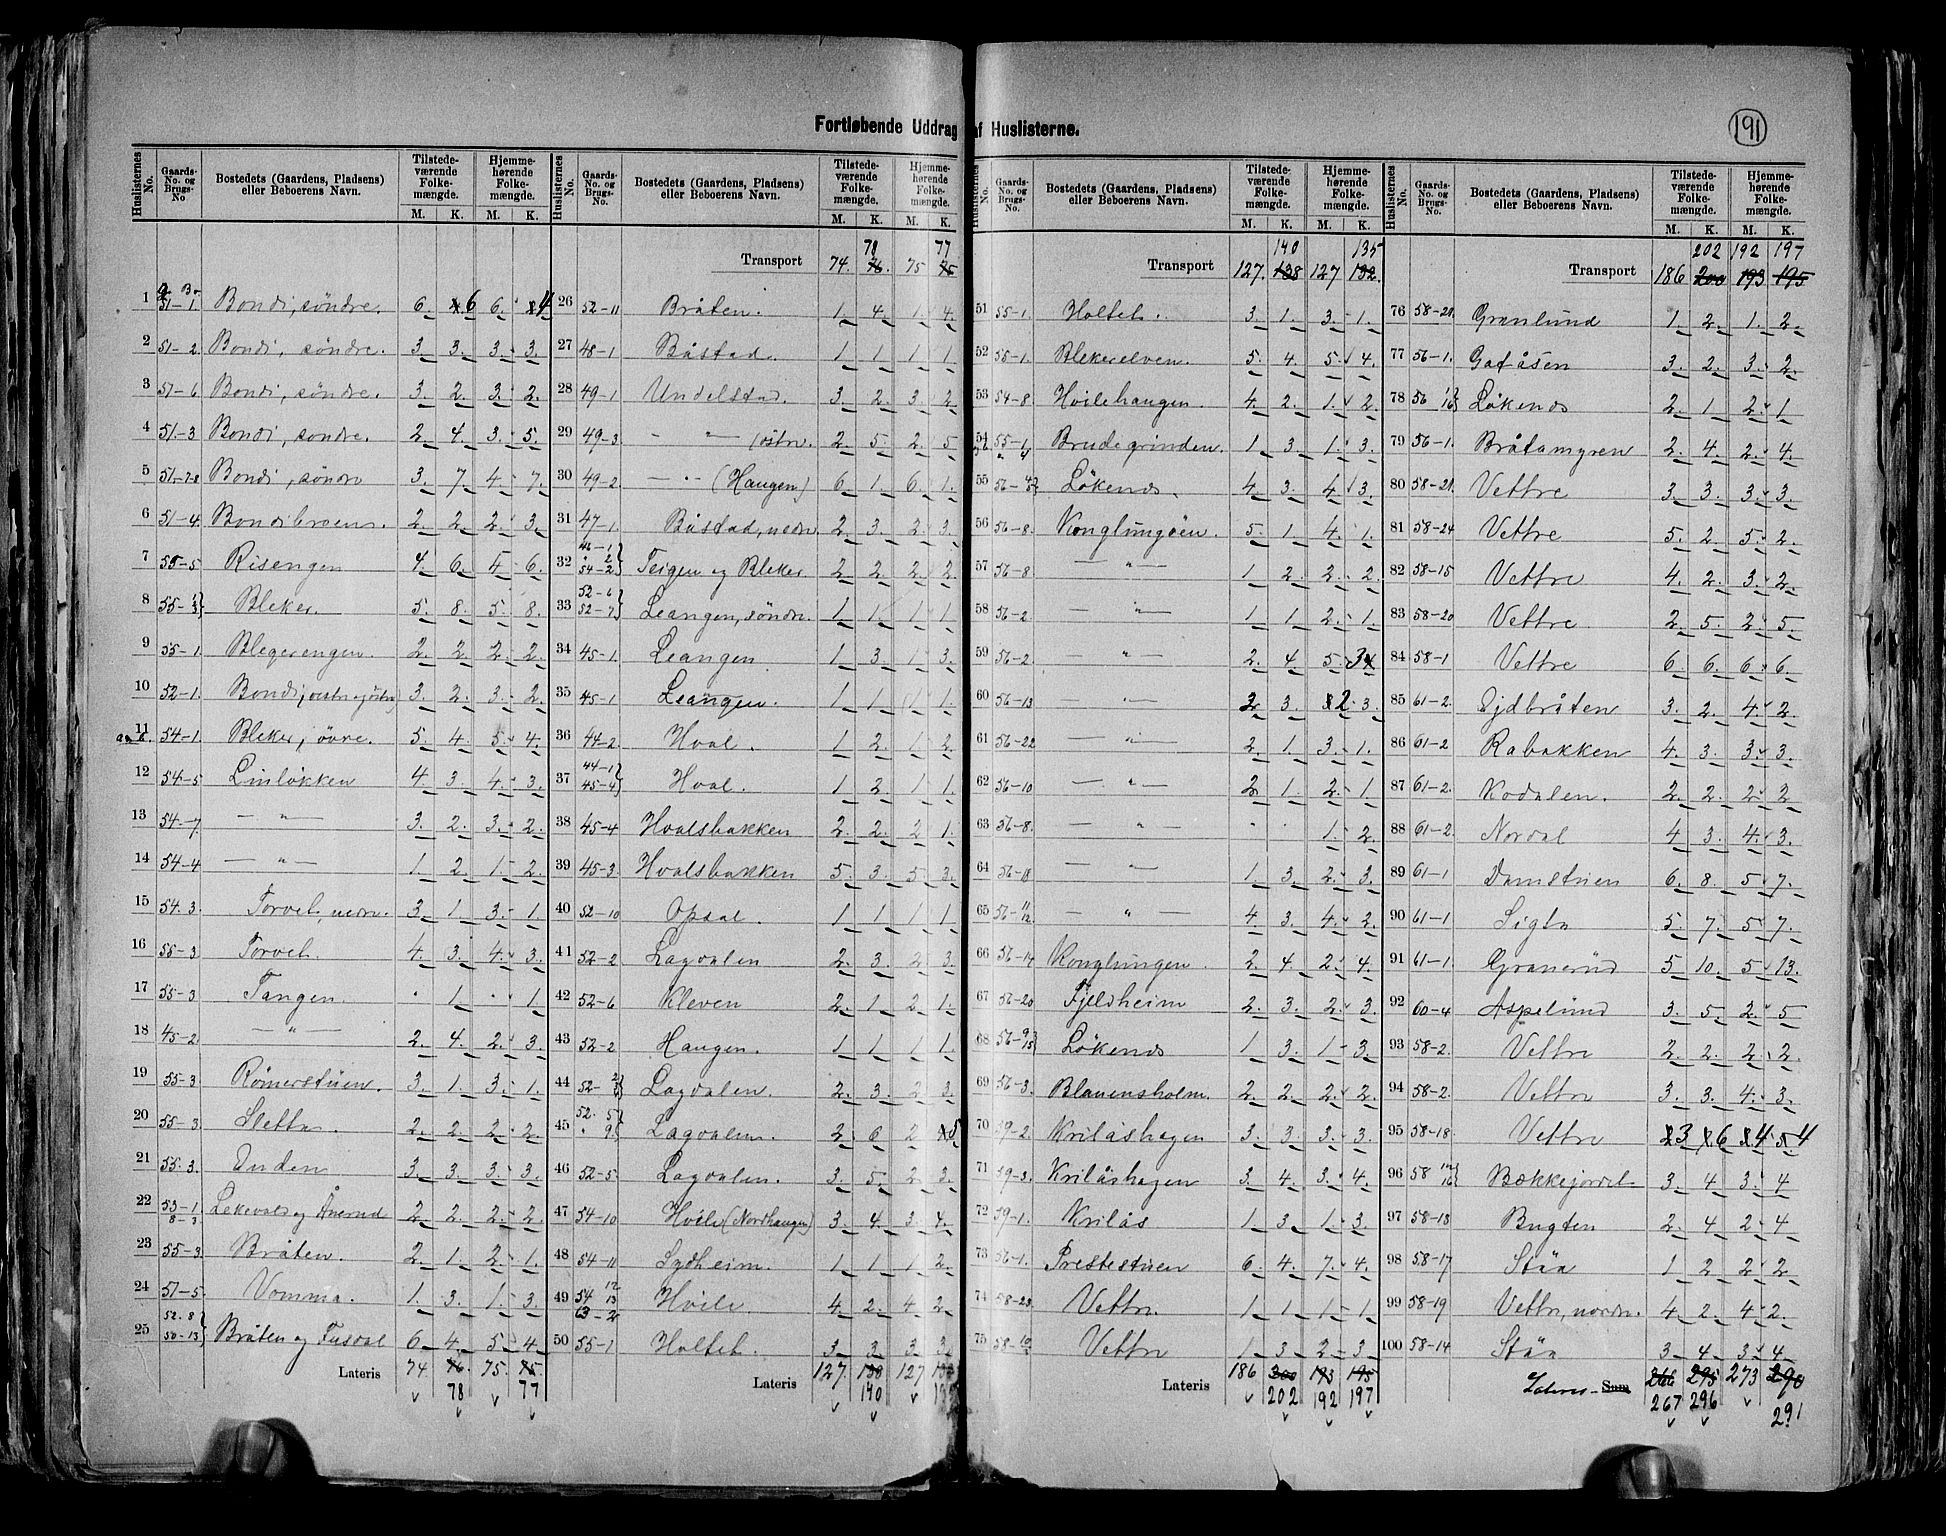 Fortløbende Uddrag af Huslisterne.
191
Huslisternes No. | Gaards-No. og Brugs-No | Bostedets (Gaardens, Pladsens) eller Beboerens Navn. | Tilstedeværende Folkemængde. M. K. | Hjemmehørende Folkemængde. M. K.
1 51-1 Bondi, søndre. 6. 6 6. 4
2 51-2 Bondi, søndre. 3. 3. 3. 3.
3 51-6 Bondi, søndre. 3. 2. 3. 2.
4 51-3 Bondi, søndre. 2. 4. 3. 5.
5 51-7-8 Bondi, søndre 3. 7. 4. 7.
6 51-4. Bondibroen. 2. 2. 2. 3.
7 55-5 Risengen 4. 6. 5. 6.
8 55- Bleker. 5. 8. 5. 8.
9 55-1 Blegerengen. 2. 2. 2. 2.
10 52-1. Bondi, 3. 2. 3. 2.
11 54-1. Bleker, øvre. 5. 4. 5. 4.
12 54-5 Linløkken 4. 3. 4. 3.
13 54-7 — " — 3. 2. 3. 2.
14 54-4 — " — 1. 2 1. 2.
15 54.3 Torvet, nedre. 3. 1. 3. 1.
16 55-3 Torvet. 4. 3. 4. 3.
17 55-3 Tangen. . 1. . 1.
18 45-2 — " — 2. 4. 2. 3.
19 55-3 Römerstuen. 3. 1. 3. 1.
20 55-3 Sletta. 2. 2. 2. 2.
21 55.3 Enden 3. 3. 3. 3.
22 53-1 Lekevold og Åmerud 2. 2. 2. 2.
23 55-3 Bråten. 2. 1. 2. 1.
24 51-5 Vomma. 1. 3. 1. 3.
25 52.8 50-13 Bråten og Fusdal 6. 4. 5. 4.
Lateris 74. 76. 75. 75.
78 77
Huslisternes No. | Gaards-No. og Brugs-No. | Bostedets (Gaardens, Pladsens) eller Beboerens Navn. | Tilstedeværende Folkemængde. M. K. | Hjemmehørende Folkemængde. M. K.
78 77
Transport 74. 76. 75 75
26 52-11 Bråten. 1. 4. 1. 4.
27 48-1 Båstad. 1 1 1 1
28 49-1 Undelstad. 3. 2. 3 2
29 49-3 — " — (östre. 2. 5. 2. 5
30 49-2 — " — (Haugen) 6. 1. 6. 1.
31 47-1. Båstad, nedre 2. 3. 2. 3.
32 46-1 54-2 Teigen og Bleker. 2. 2. 2. 2.
33 52-6 52-7 Leangen, søndre. 1 1. 1 1
34 45-1. Leangen 1. 3. 1 3.
35 45-1. Leangen. 1 1 1 1.
36 44-2. Hval. 1 2. 1 2.
37 44-1 45-4 Hval. 1 2. 1 1.
38 45-4 Hvalsbakken 2. 2. 2 1.
39 45-3. Hvalsbakken 5. 3. 5 3.
40 52-10 Opsal. 1 1 1 1
41 52-2 Lagdalen 2. 3. 2 3.
42 52-6 Kleven 2. 1 2 1.
43 52-2 Haugen. 1 1 1 1.
44 52- Lagdalen. 2. 3 2 3.
45 52. 5 9. Lagdalen. 2 6 2 5
46 52-5 Lagdalen. 3. 5. 2 3.
47 54-10 Hvile (Nordhaugen) 3. 4. 3. 4.
48 54-11 Sydheim. 1 1 1 2.
49 54 12 13 63-2 Hvile 4. 2. 4 2
50 55-1 Holtet. 3. 3. 3 3
Lateris 127. 138 127
140
Huslisternes No. | Gaards-No. og Brugs-No. | Bostedets (Gaardens, Pladsens) eller Beboerens Navn. | Tilstedeværende Folkemængde. M. K. | Hjemmehørende Folkemængde. M. K.
140 135
Transport 127. 138 127 132.
51 55-1. Holtet. 3. 1. 3. 1.
52 55-1. Blekerelven. 5. 4. 5. 4.
53 54-8 Hvilehaugen. 4. 2. 1. 2.
54 55-1 Brudegrinden. 1. 3. 1. 3.
55 56- Løkenes. 4. 3. 4. 3.
56 56-8. Konglungöen. 5. 1 4. 1.
57 56-8 — " — 1. 2. 2. 2.
58 56-2 — " — 1. 1 2. 1.
59 56-2. — " — 2. 4. 5. 3
60 56-13 — " — 2. 3. 2. 3.
61 56-22 — " — 2. 1. 3. 1.
62 56-10 — " — 2. 1. 2. 1
63 56-8. — " — . . 1. 2.
64 56-18 — " — 1. 3. 2. 3.
65 56- 11 12. — " — 4. 3. 4. 2
66 56-14 Konglungen. 2. 4. 2. 4.
67 56-20 Fjeldheim 2. 3. 2. 3.
68 56- 9 15 Løkenes 1 3. 1 3.
69 56-3. Blauensholm. 2. 2. 2. 2.
70 59-2. Kriläshagen 3. 3. 3. 3.
71 59-3. Kriläshagen 3. 4. 3. 4.
72 59-1. Kriläs 1. 3. 1. 3.
73 56-1. Prestestuen 6. 4. 7. 4.
74 58-23. Vettre. 1 1 1 1
75 58- Vettre 1. 3 2 3
Lateris 186 200 193 195
202 192 197
Huslisternes No. | Gaards-No. og Brugs-No. | Bostedets (Gaardens, Pladsens) eller Beboerens Navn. | Tilstedeværende Folkemængde. M. K. | Hjemmehørende Folkemængde. M. K.
202 192 197
Transport 186 200 193 195
76 58-28. Granlund 1. 2. 1. 2.
77 56-1. Gasåsen 3. 2. 3. 2.
78 56 Løkenes 2. 1 2. 1
79 56-1. Bråtamyren 2. 4. 2. 4.
80 58-21. Vettre 3. 3. 3. 3.
81 58-24 Vettre 5. 2. 5. 2.
82 58-15 Vettre 4. 2. 3. 2.
83 58-20 Vettre. 2. 5. 2. 5.
84 58-1 Vettre 6. 6. 6. 6.
85 61-2. Ejdbråten 3. 2. 4. 2.
86 61-2 Rabakken 4. 3. 3. 3.
87 61-2. Kodalen. 2. 2. 2. 2
88 61-2 Nordal 4 3. 4. 3
89 61-1 Damstuen 6. 8. 5. 7.
90 61-1 Sigta 5. 7. 5. 7.
91 61-1. Granerüd 5 10. 5. 13.
92 60-4 Aspelund 3. 5. 2. 5
93 58-2. Vettre 2. 2. 2. 2.
94 58-2. Vettre 3. 3. 4. 3.
95 58-18. Vettre 3 6 4 4
96 58 Bækkejordet 3. 4 3. 4
97 58-13 Bugten 2. 4 2. 4
98 58-17 Ståa 1 2 2 2.
99 58-19 Vettre, nordre. 4. 2. 4. 2.
100 58-14 Ståa 3 4. 3. 4.
Lateris Sum 266 295 273 290
267 296 291